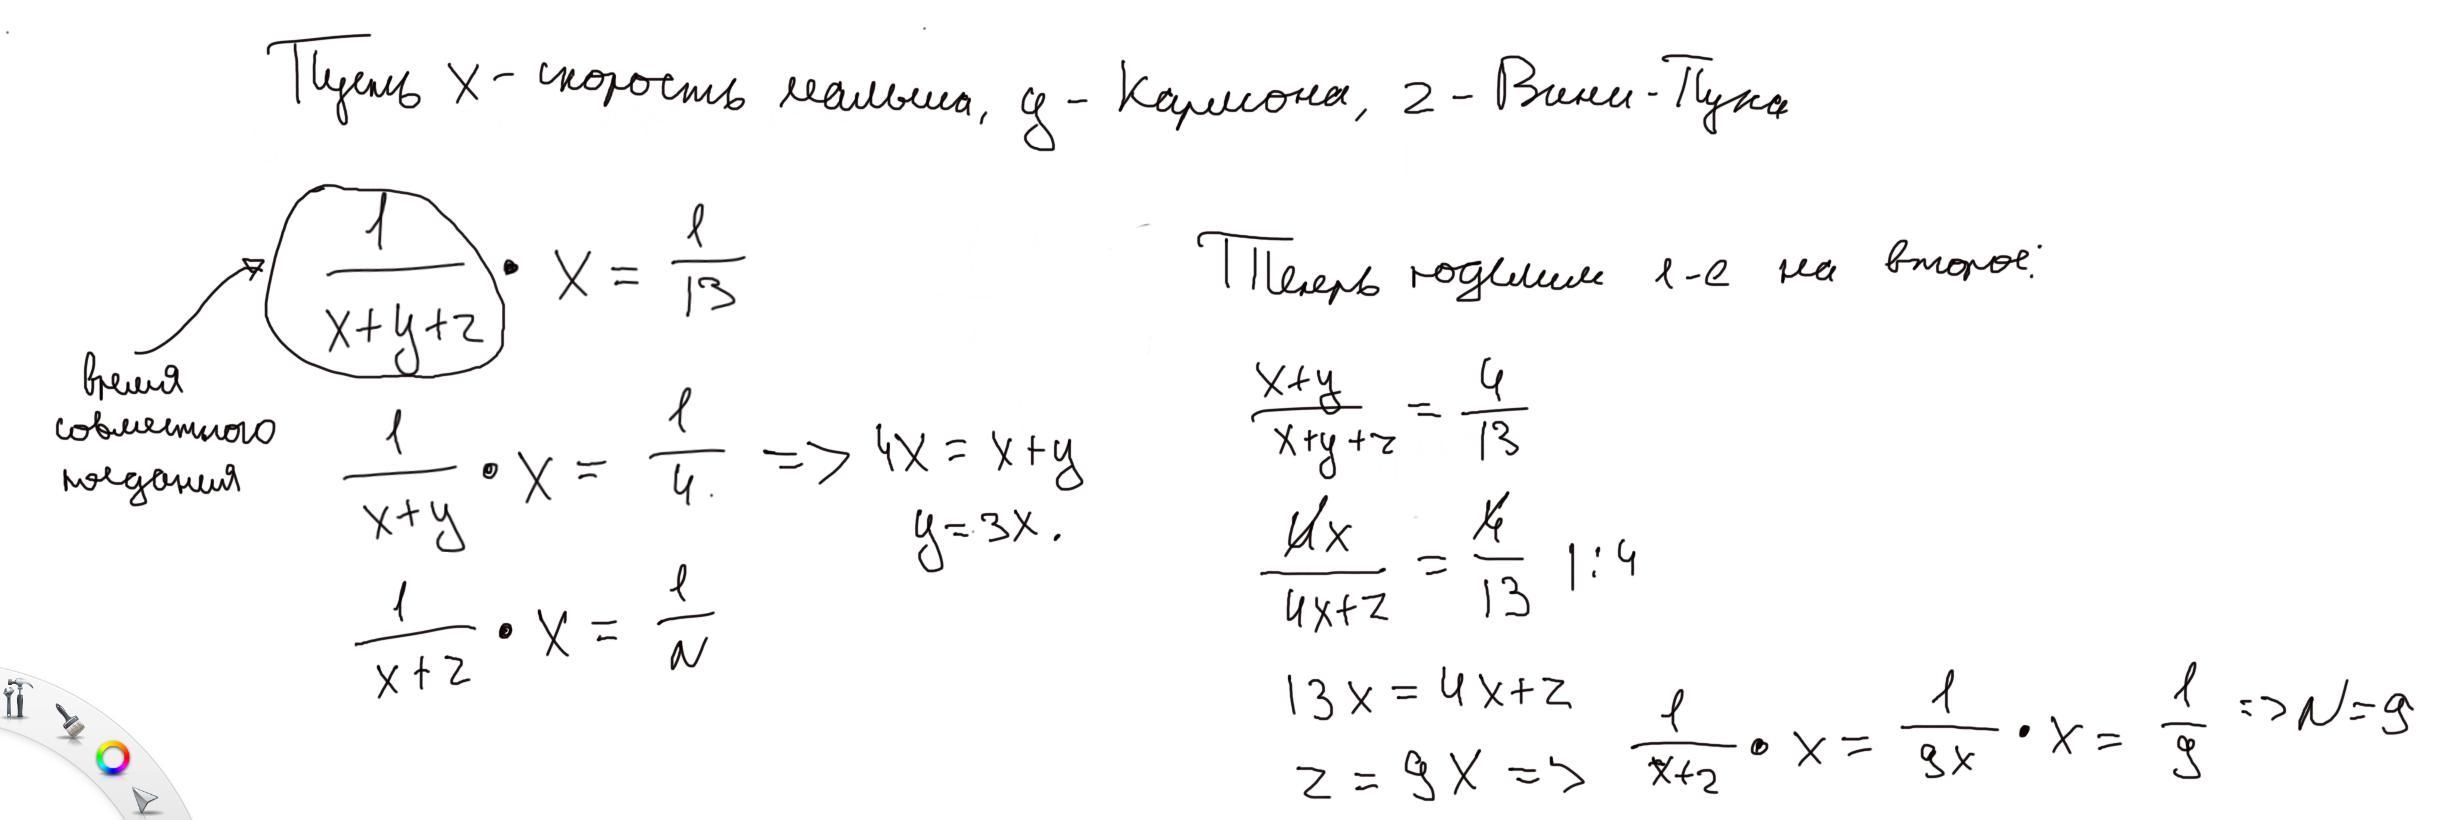 Пусть x - скорость малыша, y - Карлсона, z - Вини-Пуха
1/(x+y+z) • x = 1/13
время
совместного
поедания
1/(x+y) • x = 1/4 => 4x = x+y
y = 3x.
1/(x+z) • x = 1/N
Теперь поделим 1-е на второе:
(x+y)/(x+y+z) = 4/13
4x/(4x+z) = 4/13 |:4
13x = 4x+z
z = 9x => 1/(x+z) • x = 1/9x • x = 1/9 => N=9